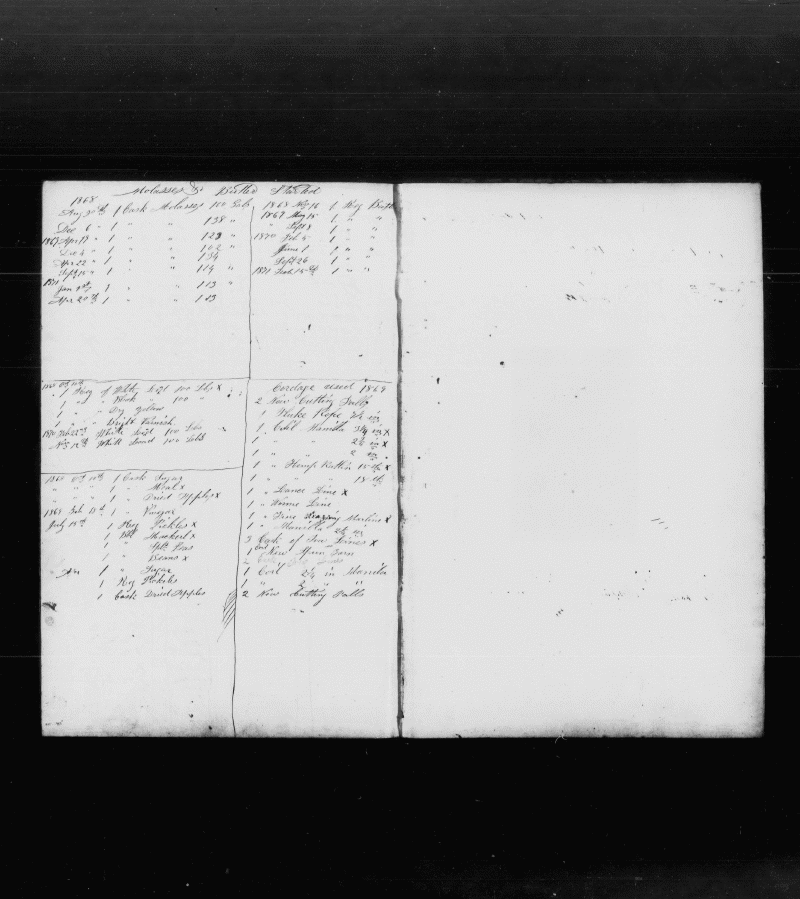 Molasses & Butter Started
1868
Aug 30th 1 Cask Molasses 100 Gals
Dec 6 " 1 " " 138 "
1869 Apr 13 " 1 " " 123 "
Dec 2 " 1 " " 102 "
Apr 22 " 1 " " 134
Sept 15 " 1 " " 114 "
1871
Jan 9th 1 " " 113 "
Apr 20th 1 " " 113
1868 16 1 Keg Butter
1869 May 15 1 " "
" Sept 8 1 " "
1870 Feb 5 1 " "
June 1 1 " "
Sept 26 1 " "
1871 Feb 15th 1 " "
1868 Oct 10th
1 Keg of White Lead 100 Lbs x
1 " " Black " 100 "
1 " " Dry Yellow
1 " " Bright Varnish
1870 Feb 22nd White Lead 100 Lbs
12th White Lead 100 Lbs
1868 Oct 10th 1 Cask Sugar
" " " 1 " Meal x
" " " 1 " Dried Apples x
1869 Feb 18th 1 " Vinegar
July 18th 1 Keg Pickles x
1 Bbl Mackerel x
1 " Peas
1 " Beans x
1 " Sugar
1 Keg Pickels
1 Cask Dried Apples
Cordage used 1869
2 New Cutting Falls
1 Fluke Rope
1 Coil Manilla 3 1/4 in x
1 " " 2 1/2 in x
1 " " 2 in "
1 " Hemp Ratlin 15 th x
1 " " 18 th
1 " Lance Line x
1 " Line
1 " Fine Marline x
1 " Manilla 2 1/4 in
3 Cask of Tow Lines x
1 Coil New Spun Yarn
1 Coil 2 1/4 in Manila
1 " 2 " "
2 New Cutting Falls